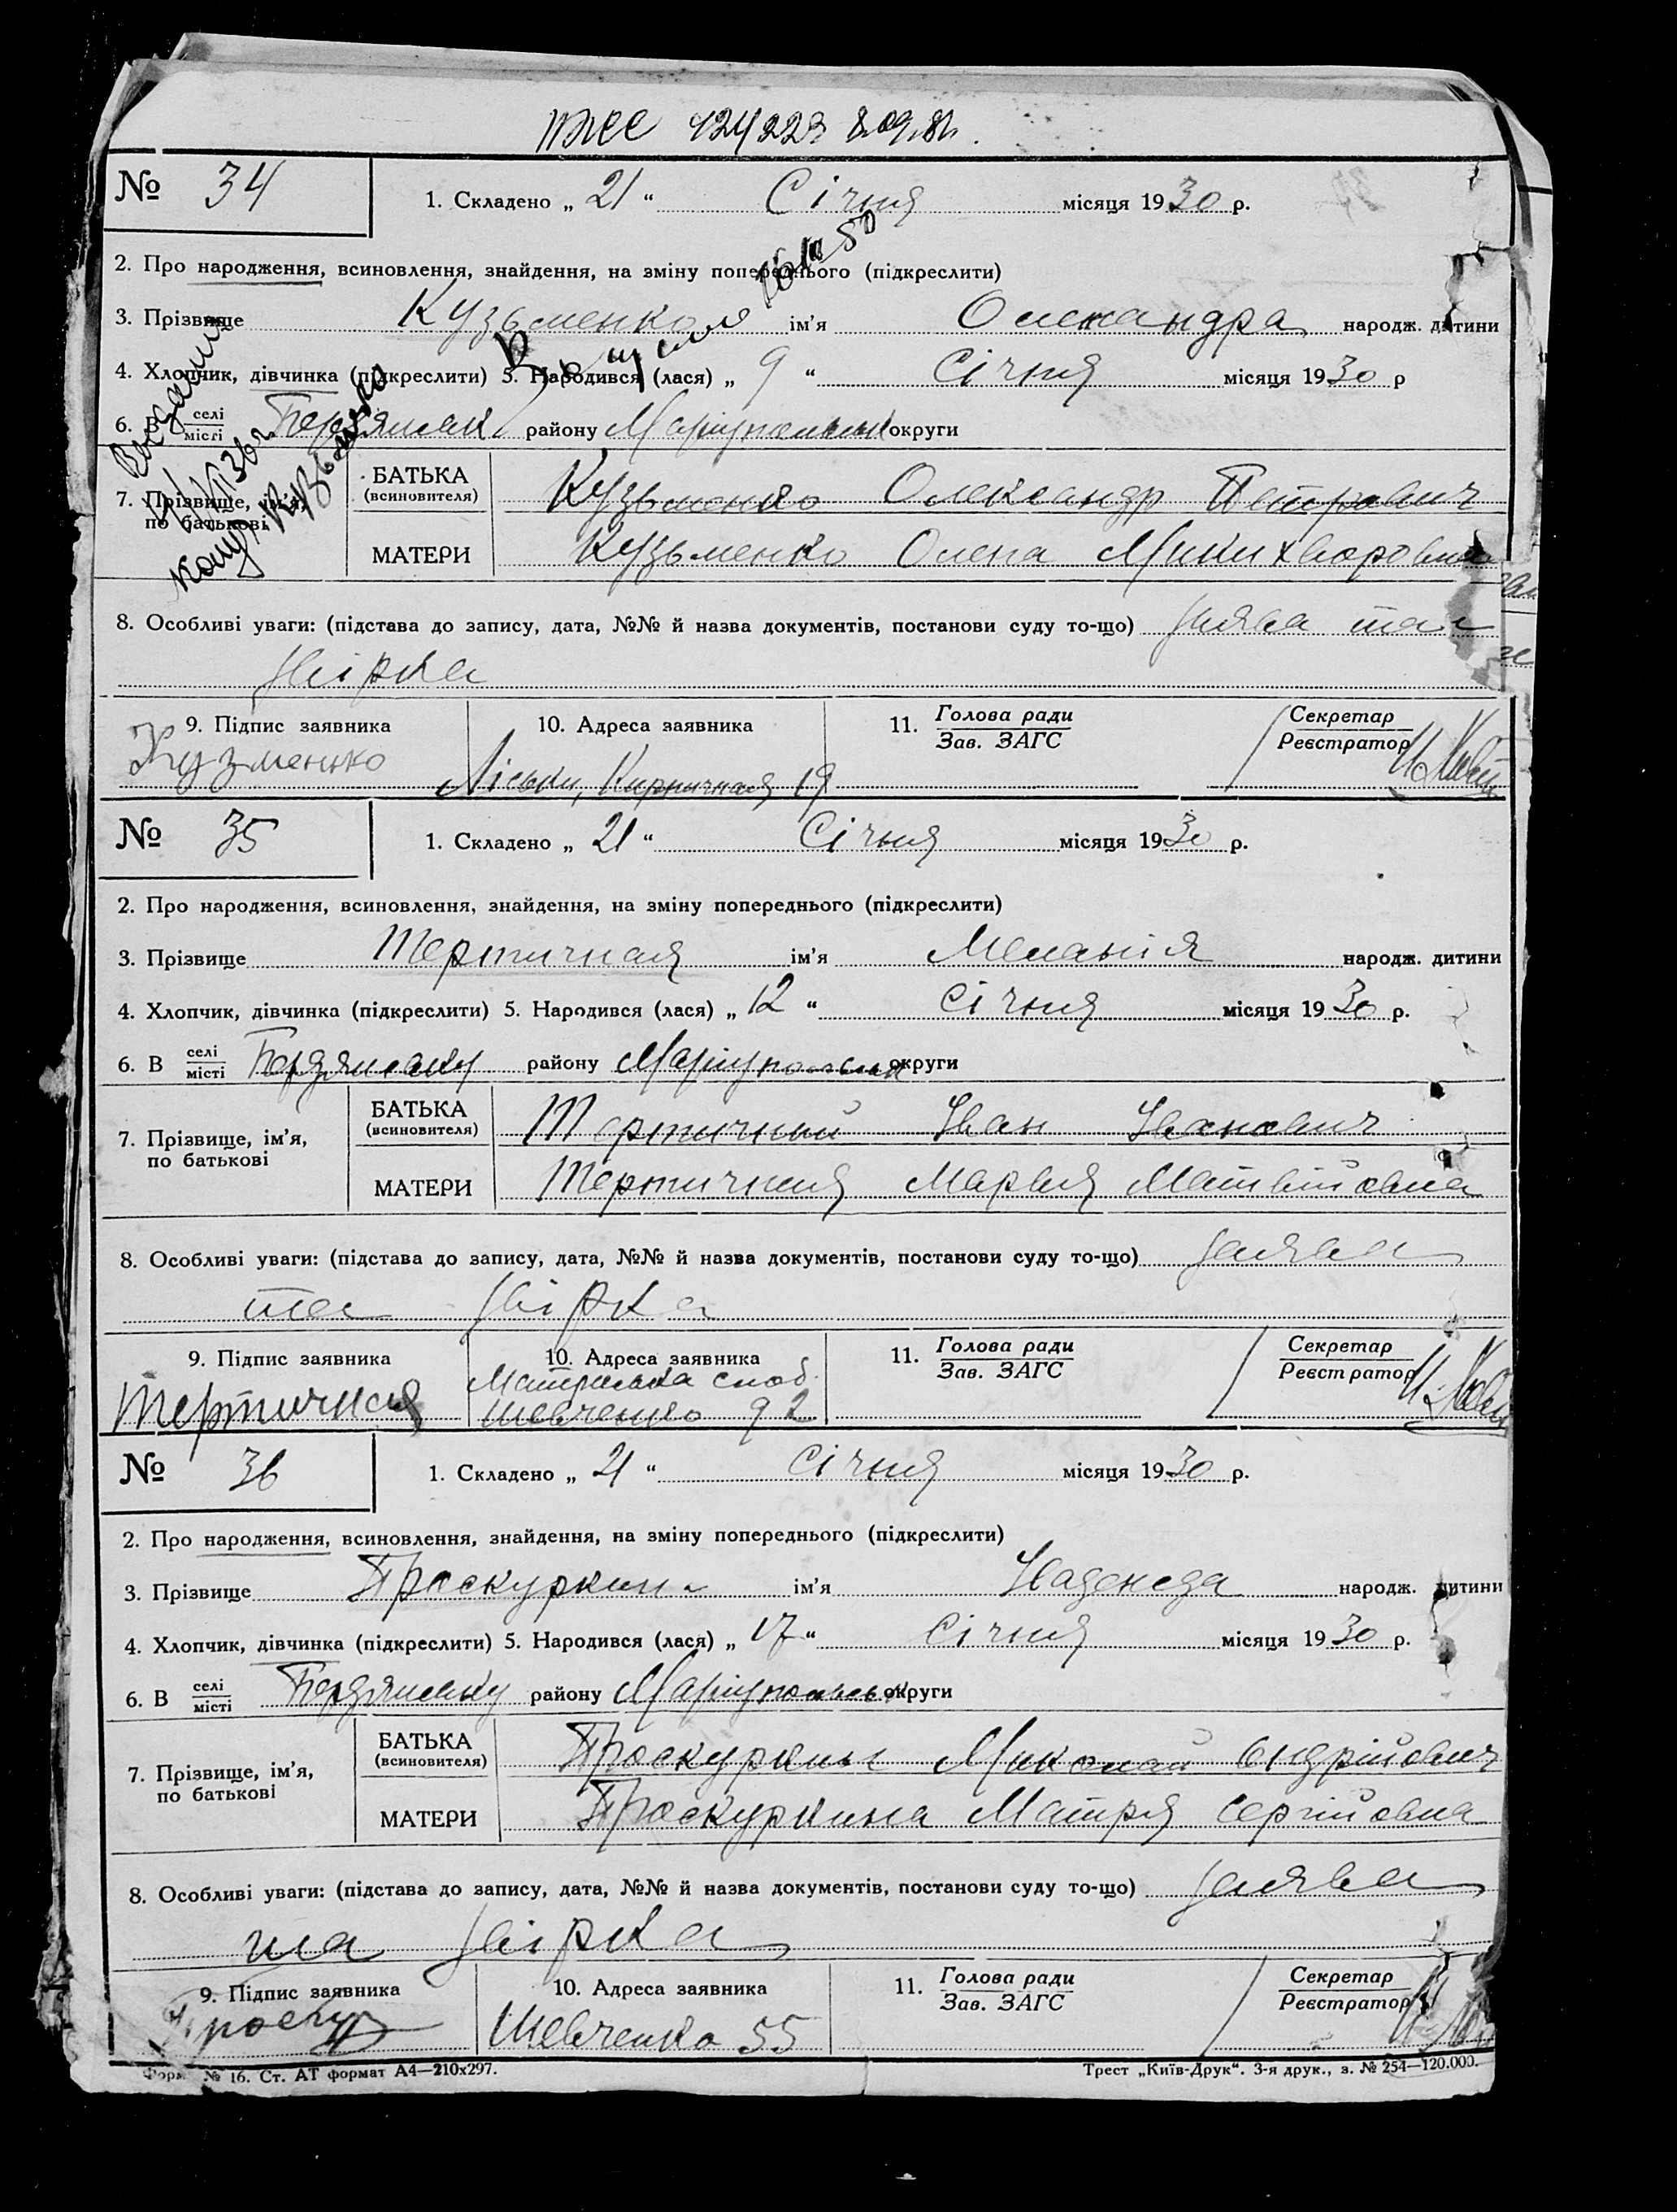 424223 8.09.81.
№ 34 1. Складено „ 21 “ Січня місяця 1930 р.
2. Про народження, всиновлення, знайдення, на зміну попереднього (підкреслити)
3. Прізвище Кузьменко ім'я Олександра народж. дитини
4. Хлопчик, дівчинка (підкреслити) 5. Народився (лася) „ 9 “ Січня місяця 1930 р
6. В селі місті району округи
7. Прізвище, ім'я, по батькові
БАТЬКА (всиновителя) Кузьменко Олександр Петрович
МАТЕРИ Кузьменко Олена
8. Особливі уваги: (підстава до запису, дата, №№ й назва документів, постанови суду то-що) заява та
звірка
9. Підпис заявника 10. Адреса заявника 11. Голова ради Зав. ЗАГС Секретар Реєстратор
Кузменко Ліски, Кирпичная 19
№ 35 1. Складено „ 21 “ Січня місяця 1930 р.
2. Про народження, всиновлення, знайдення, на зміну попереднього (підкреслити)
3. Прізвище Тертичная ім'я Меланія народж. дитини
4. Хлопчик, дівчинка (підкреслити) 5. Народився (лася) „ 12 “ Січня місяця 1930 р.
6. В селі місті Бердянську району округи
7. Прізвище, ім'я, по батькові
БАТЬКА (всиновителя) Тертичний Іван Іванович
МАТЕРИ Тертичная Марья Матвійовна
8. Особливі уваги: (підстава до запису, дата, №№ й назва документів, постанови суду то-що) заява
та звірка
9. Підпис заявника 10. Адреса заявника 11. Голова ради Зав. ЗАГС Секретар Реєстратор
Тертичная Шевченко 92
№ 36 1. Складено „ 21 “ Січня місяця 1930 р.
2. Про народження, всиновлення, знайдення, на зміну попереднього (підкреслити)
3. Прізвище ім'я Надежда народж. дитини
4. Хлопчик, дівчинка (підкреслити) 5. Народився (лася) „ 17 “ Січня місяця 1930 р.
6. В селі місті Бердянську району округи
7. Прізвище, ім'я, по батькові
БАТЬКА (всиновителя) Миколай Андрійович
МАТЕРИ Проскуркина Матря Сергійовна
8. Особливі уваги: (підстава до запису, дата, №№ й назва документів, постанови суду то-що) заява
та звірка
9. Підпис заявника 10. Адреса заявника 11. Голова ради Зав. ЗАГС Секретар Реєстратор
Шевченко 55
Форм. № 16. Ст. АТ формат А4—210х297. Трест „Київ-Друк“. 3-я друк., з. № 254—120.000.